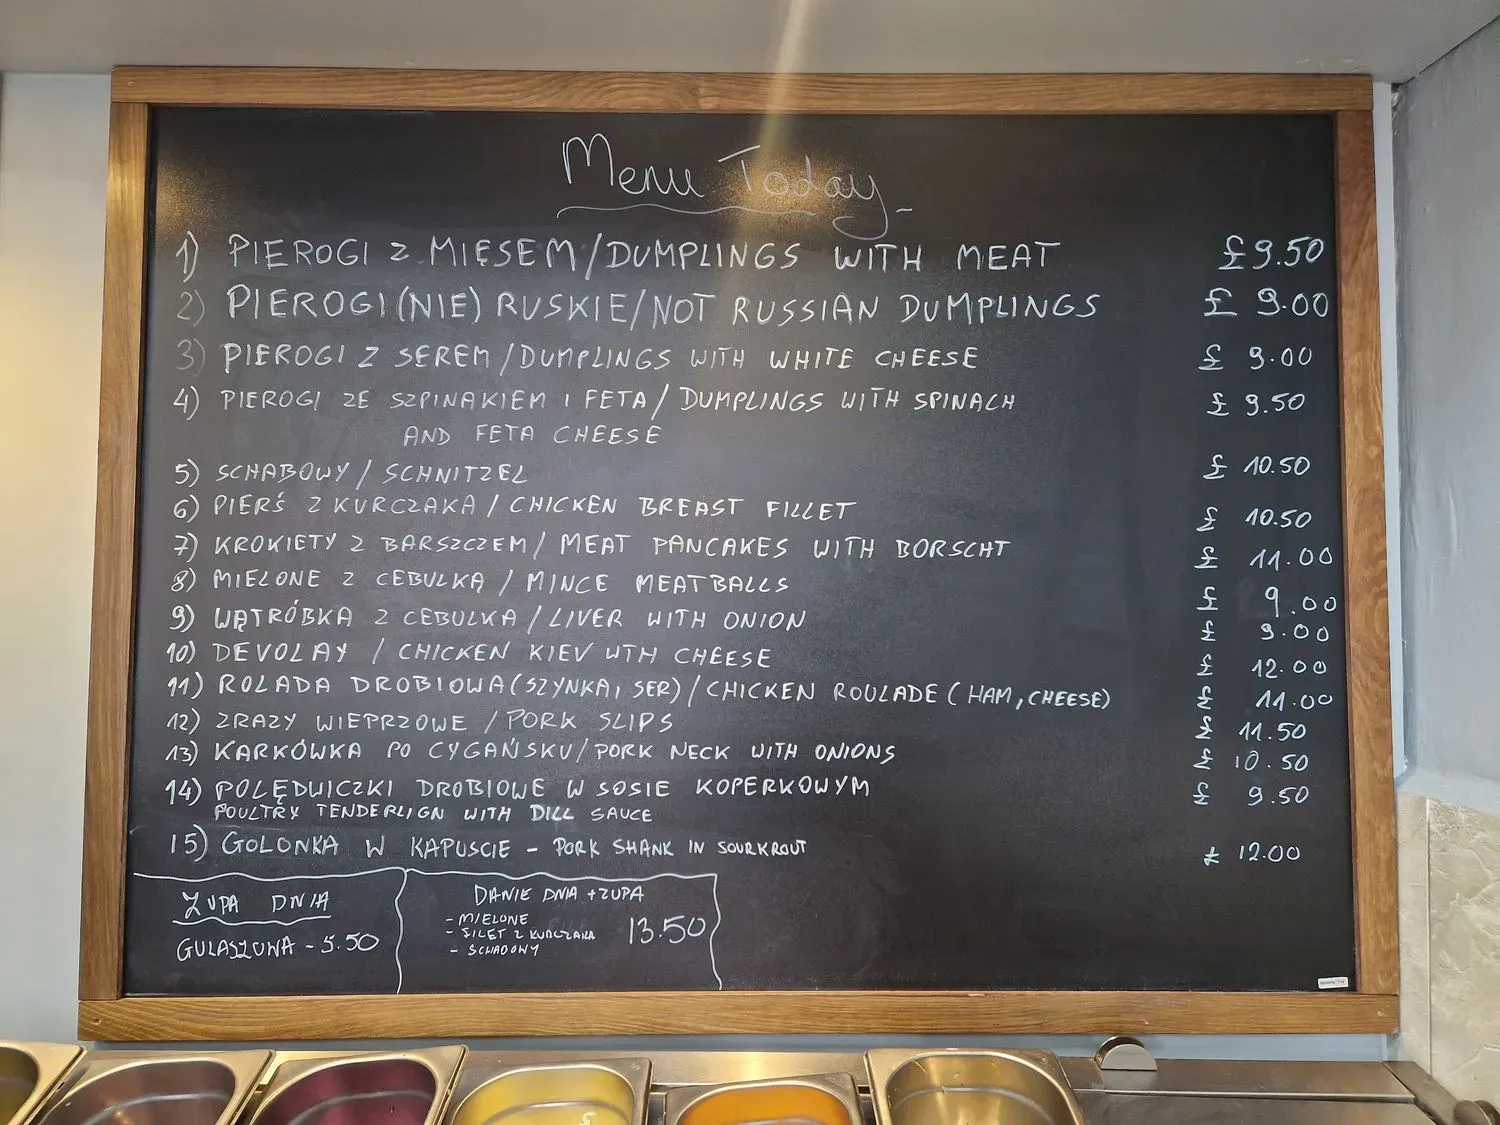 Menu Today
1) PIEROGI Z MIĘSEM/DUMPLINGS WITH MEAT £9.50
2) PIEROGI (NIE) RUSKIE/NOT RUSSIAN DUMPLINGS £ 9.00
3) PIEROGI Z SEREM/DUMPLINGS WITH WHITE CHEESE £ 9.00
4) PIEROGI ZE SZPINAKIEM I FETA/DUMPLINGS WITH SPINACH £ 9.50
AND FETA CHEESE
5) SCHABOWY/SCHNITZEL £ 10.50
6) PIERŚ Z KURCZAKA/CHICKEN BREAST FILLET £ 10.50
7) KROKIETY Z BARSZCZEM/MEAT PANCAKES WITH BORSCHT £ 11.00
8) MIELONE Z CEBULKĄ/MINCE MEATBALLS £ 9.00
9) WĄTRÓBKA Z CEBULKA/LIVER WITH ONION £ 9.00
10) DEVOLAY / CHICKEN KIEV WTH CHEESE £ 12.00
11) ROLADA DROBIOWA (SZYNKA, SER)/CHICKEN ROULADE (HAM, CHEESE) £ 11.00
12) ZRAZY WIEPRZOWE /PORK SLIPS £ 11.50
13) KARKÓWKA PO CYGAŃSKU/PORK NECK WITH ONIONS £ 10.50
14) POLĘDWICZKI DROBIOWE W SOSIE KOPERKOWYM £ 9.50
POULTRY TENDERLIGN WITH DILL SAUCE
15) GOLONKA W KAPUSCIE - PORK SHANK IN SOURKROUT £ 12.00
ZUPA DNIA
GULASZOWA - 5.50
DANIE DNIA + ZUPA
- MIELONE
- FILET Z KURCZAKA 13.50
- SCHABOWY